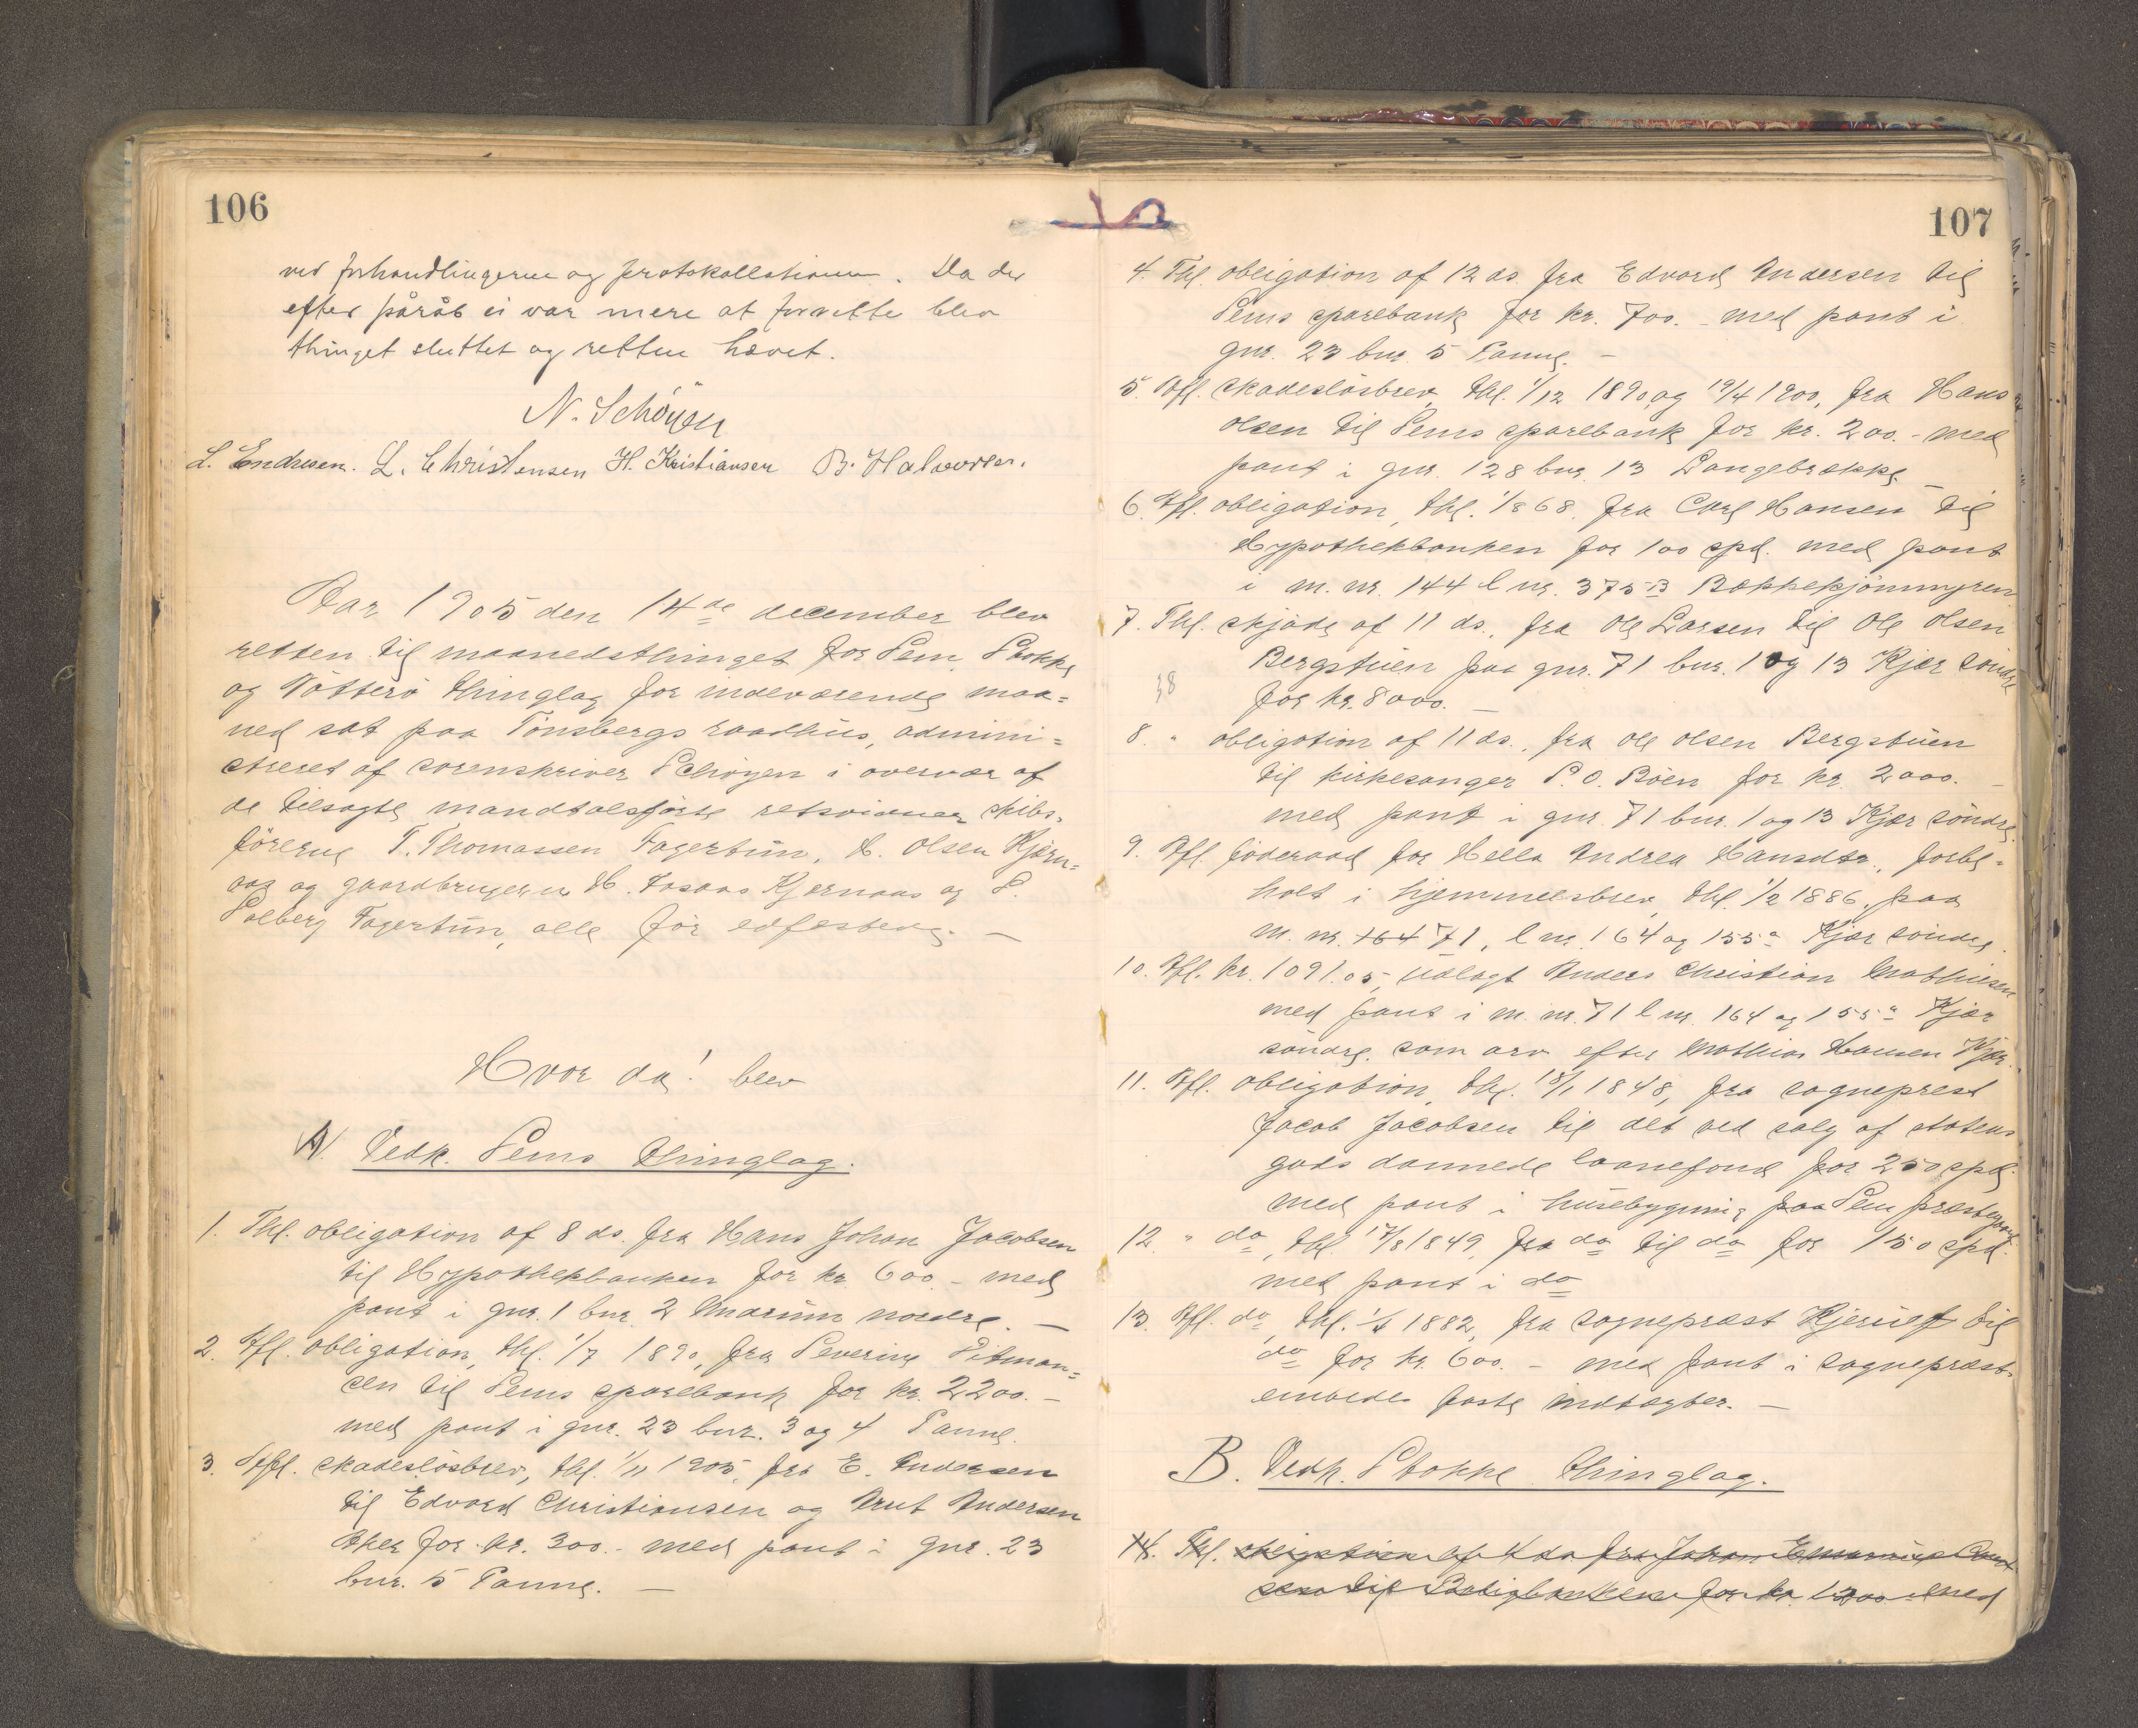 106
ved forhandlingerne og protokollationen. Da der
efter påråb ei var mere at forrette blev
thinget sluttet og retten hævet.
N. Schöyen
L. Endresen. L. Christensen H. Kristiansen B. Halvorsen.
Aar 1905 den 14de december blev
retten til maanedsthinget for Sem, Stokke
og Nötterö thinglag for indeværende maa=
ned sat paa Tönsbergs raadhus, admini=
streret af sorenskriver Schöyen i overvær af
de tilsagte mandtalsförte retsvidner skibs-
förerne T. Thomassen Fagertun, H. Olsen Kjærn=
aas og gaardbrugerne H. Kjernaas og S.
Solberg Fagertun, alle för edfæstede. —
Hvor da! blev
A. Vedk. Sems thinglag.
1. Thl. obligation af 8 ds. fra Hans Johan Jacobsen
til Hypothekbanken for kr. 600 - med
pant i gnr. 1 bnr. 2 Marum nordre. —
2. Afl. obligation, thl. 1/7 1890, fra Severine Sitman=
sen til Sems sparebank for kr. 2200. -
med pant i gnr. 23 bnr. 3 og 4 Tanne.
3. Afl. skadeslösbrev, thl. 1/11 1905, fra E. Andersen
til Edvard Christiansen og Knut Andersen
Aker for kr. 300.- med pant i gnr. 23
bnr. 5 Tanne. —
107
4. Thl. obligation af 12 ds. fra Edvard Andersen til
Sems sparebank for kr. 700. - med pant i
gnr. 23 bnr. 5 Tanne. —
5. Afl. skadeslösbrev, thl. 1/12 1890 og 19/4 1900, fra Hans
Olsen til Sems sparebank for kr. 200. - med
pant i gnr. 128 bnr. 13 Langebrække —
6. Afl. obligation, thl. 1/8 68. fra Carl Hansen til
Hypothekbanken for 100 spd. med pant
i m. nr. 144 l nr. 375 B Bækkekjönnmyren
7. Thl. skjöde af 11 ds., fra Ole Larsen til Ole Olsen
Bergstuen paa gnr. 71 bnr. 1 og 13 Kjær söndre
38
for kr. 8000. —
8. " obligation af 11 ds., fra Ole Olsen Bergstuen
til kirkesanger S. O. Böen for kr. 2000. -
med pant i gnr. 71 bnr. 1 og 13 Kjær söndre.
9. Afl. föderaad for Hella Andrea Hansdtr., forbe=
holt i hjemmelsbrev, thl. 1/2 1886, paa
m. nr. 164 71, l nr. 164 og 155a Kjær söndre.
10. Afl. kr. 1091.05, udlagt Anders Christian Mathiesen
med pant i m. nr. 71 l nr. 164 og 155a Kjær
söndre, som arv efter Mathias Hansen Kjær.
11. Afl. obligation, thl. 18/1 1848, fra sogneprest
Jacob Jacobsen til det ved salg af statens
gods dannede laanefond for 250 spd.
med pant i husebygning paa Sem præstegaard.
12. " do, thl. 17/8 1849, fra do til do for 150 spd.
med pant i do
13. Afl. do, thl. 1882, fra sogneprest Kjerulf til
do for kr. 600. - med pant i sogneprest-
embedes faste indtægter. —
B. Vedk. Stokke thinglag.
14. Thl. obligation af 4 ds. fra Johan
til for kr. 1200 - med